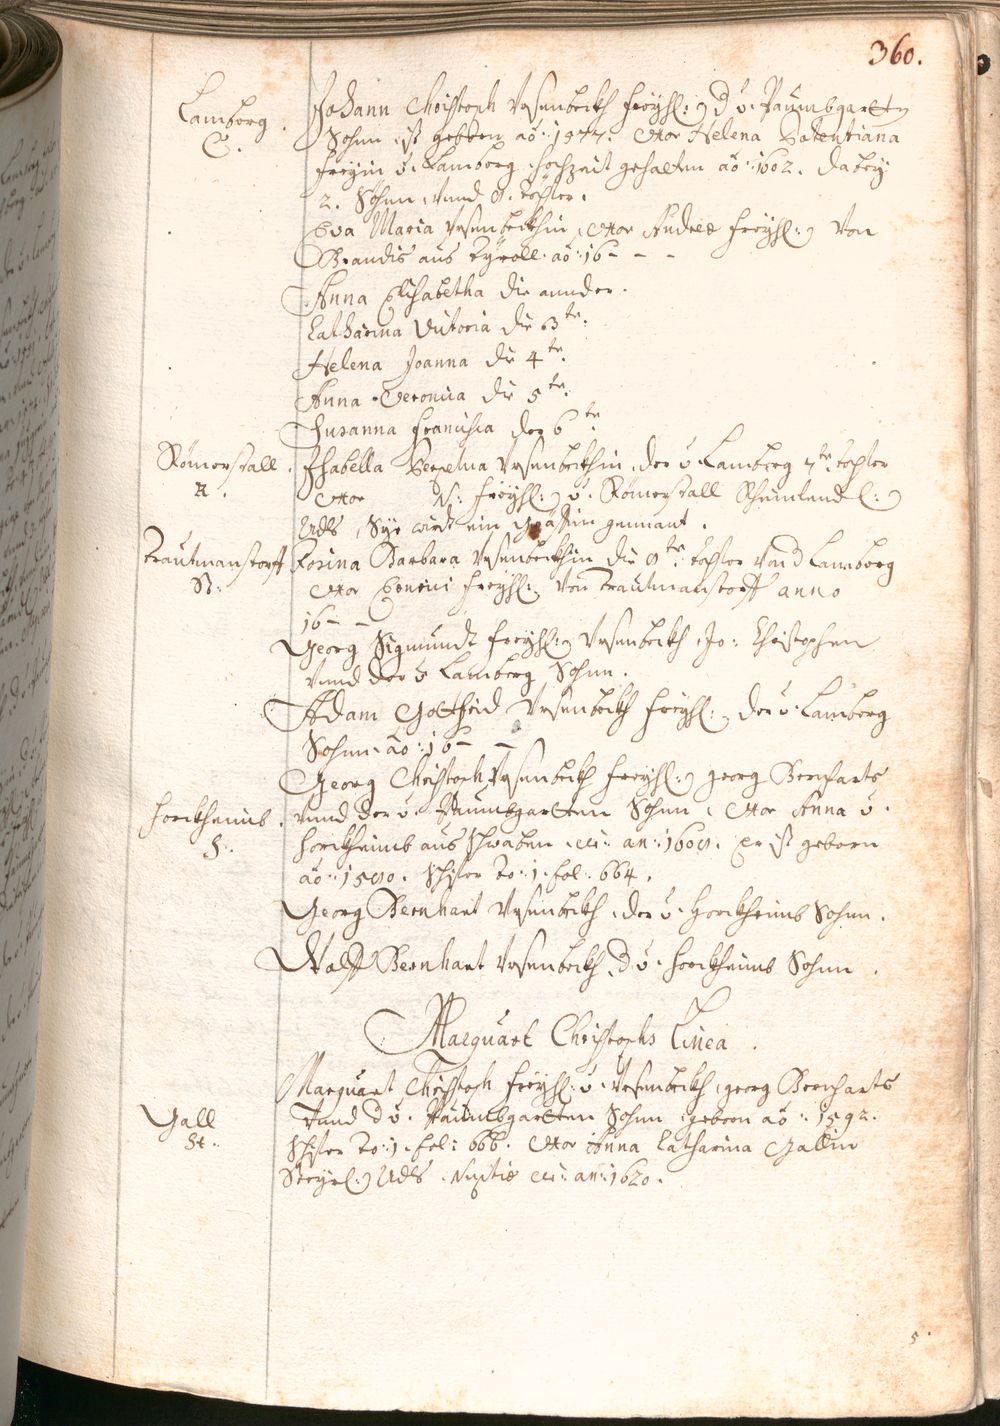 360.
Lamberg
C.
Johann Christoph Ursenbeckh Freyhl: d v: Paumbgarten
Sohn ist geborn aō: 1577. Uxor Helena Potentiana
Freyin v: Lamberg, hochzeit gehalten aō: 1602. dabey
2. Söhne, unnd 8. töchter.
Eva Maria Ursenbeckhin, Uxor Andreæ Freyhl: Von
Brandis aus Tyroll. aō: 16- - -
Anna Elisabetha die annder.
Catharina Victoria die 3te:
Helena Joanna die 4te.
Anna Veronica die 5te.
Susanna Francisca der 6te
Römerstall
R.
Isabella Perpetua Ursenbeckhin, der v. Lamberg 7te tochter
Uxor N: Freyhl: v. Römerstall Rheinlendl:
Adls, Sye wirdt ein Gräffin genant.
Trautmanstorff
St:
Rosina Barbara Ursenbeckhin die 8te tochter Von d Lamberg
Uxor Freyhl: Von Trautmanstorff anno
16 - -
Georg Sigmundt Freyhl: Ursenbeckh, Jo: Christophen
unnd der v Lamberg Sohn.
Adam Gotfrid Ursenbeckh Freyhl: der v. Lamberg
Sohn. aō: 16 - -
Georg Christoph Ursenbeckh Freyhl: georg Bernharts
unnd der v. Paumbgarten Sohn, Uxor Anna v.
Horckheimb
S:
Horckheimb aus Schwaben. an: 1609. Er ist geborn
aō: 1580. To: 1. fol: 664.
Georg Bernhart Ursenbeckh, der v. Horckheimb Sohn.
Wolff Bernhart Ursenbeckh, d v. Horckheimb Sohn.
Marquart Christophs Linea.
Marquart Christoph Freyhl: v. Ursenbeckh, georg Bernharts
Unnd d v. Paumbgarten Sohn, geborn aō: 1592.
Gall
St:
To: 1. fol: 666. Uxor Anna Catharina Gallin
Steyrl: Adls. Nuptiæ an: 1620.
5.